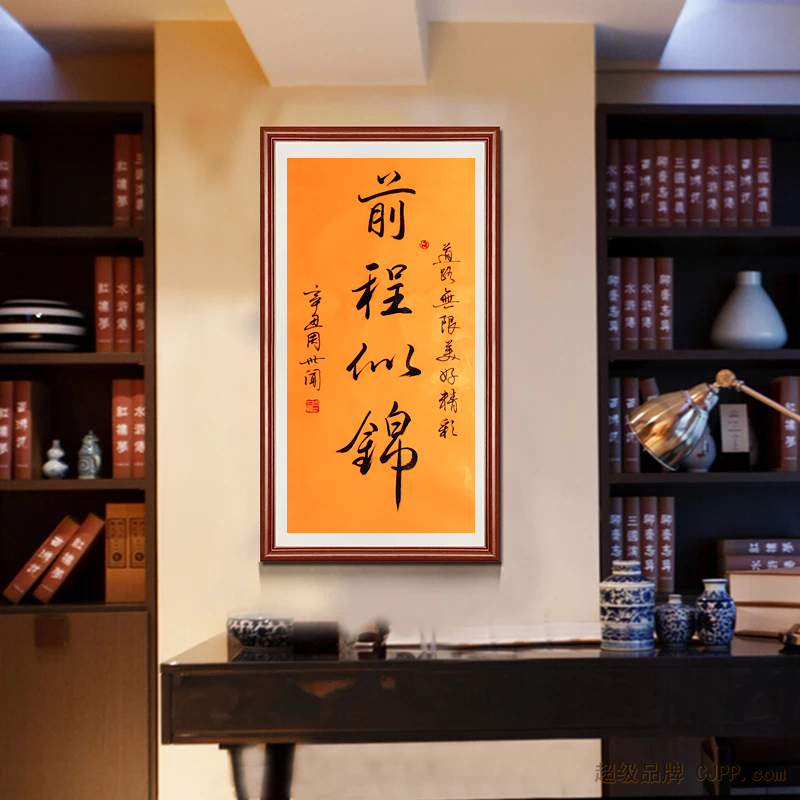 前程似錦
道路無限美好精彩
辛丑周世聞
紅樓夢
水滸傳
三國演義
聊齋志異
超级品牌 CJPP.com